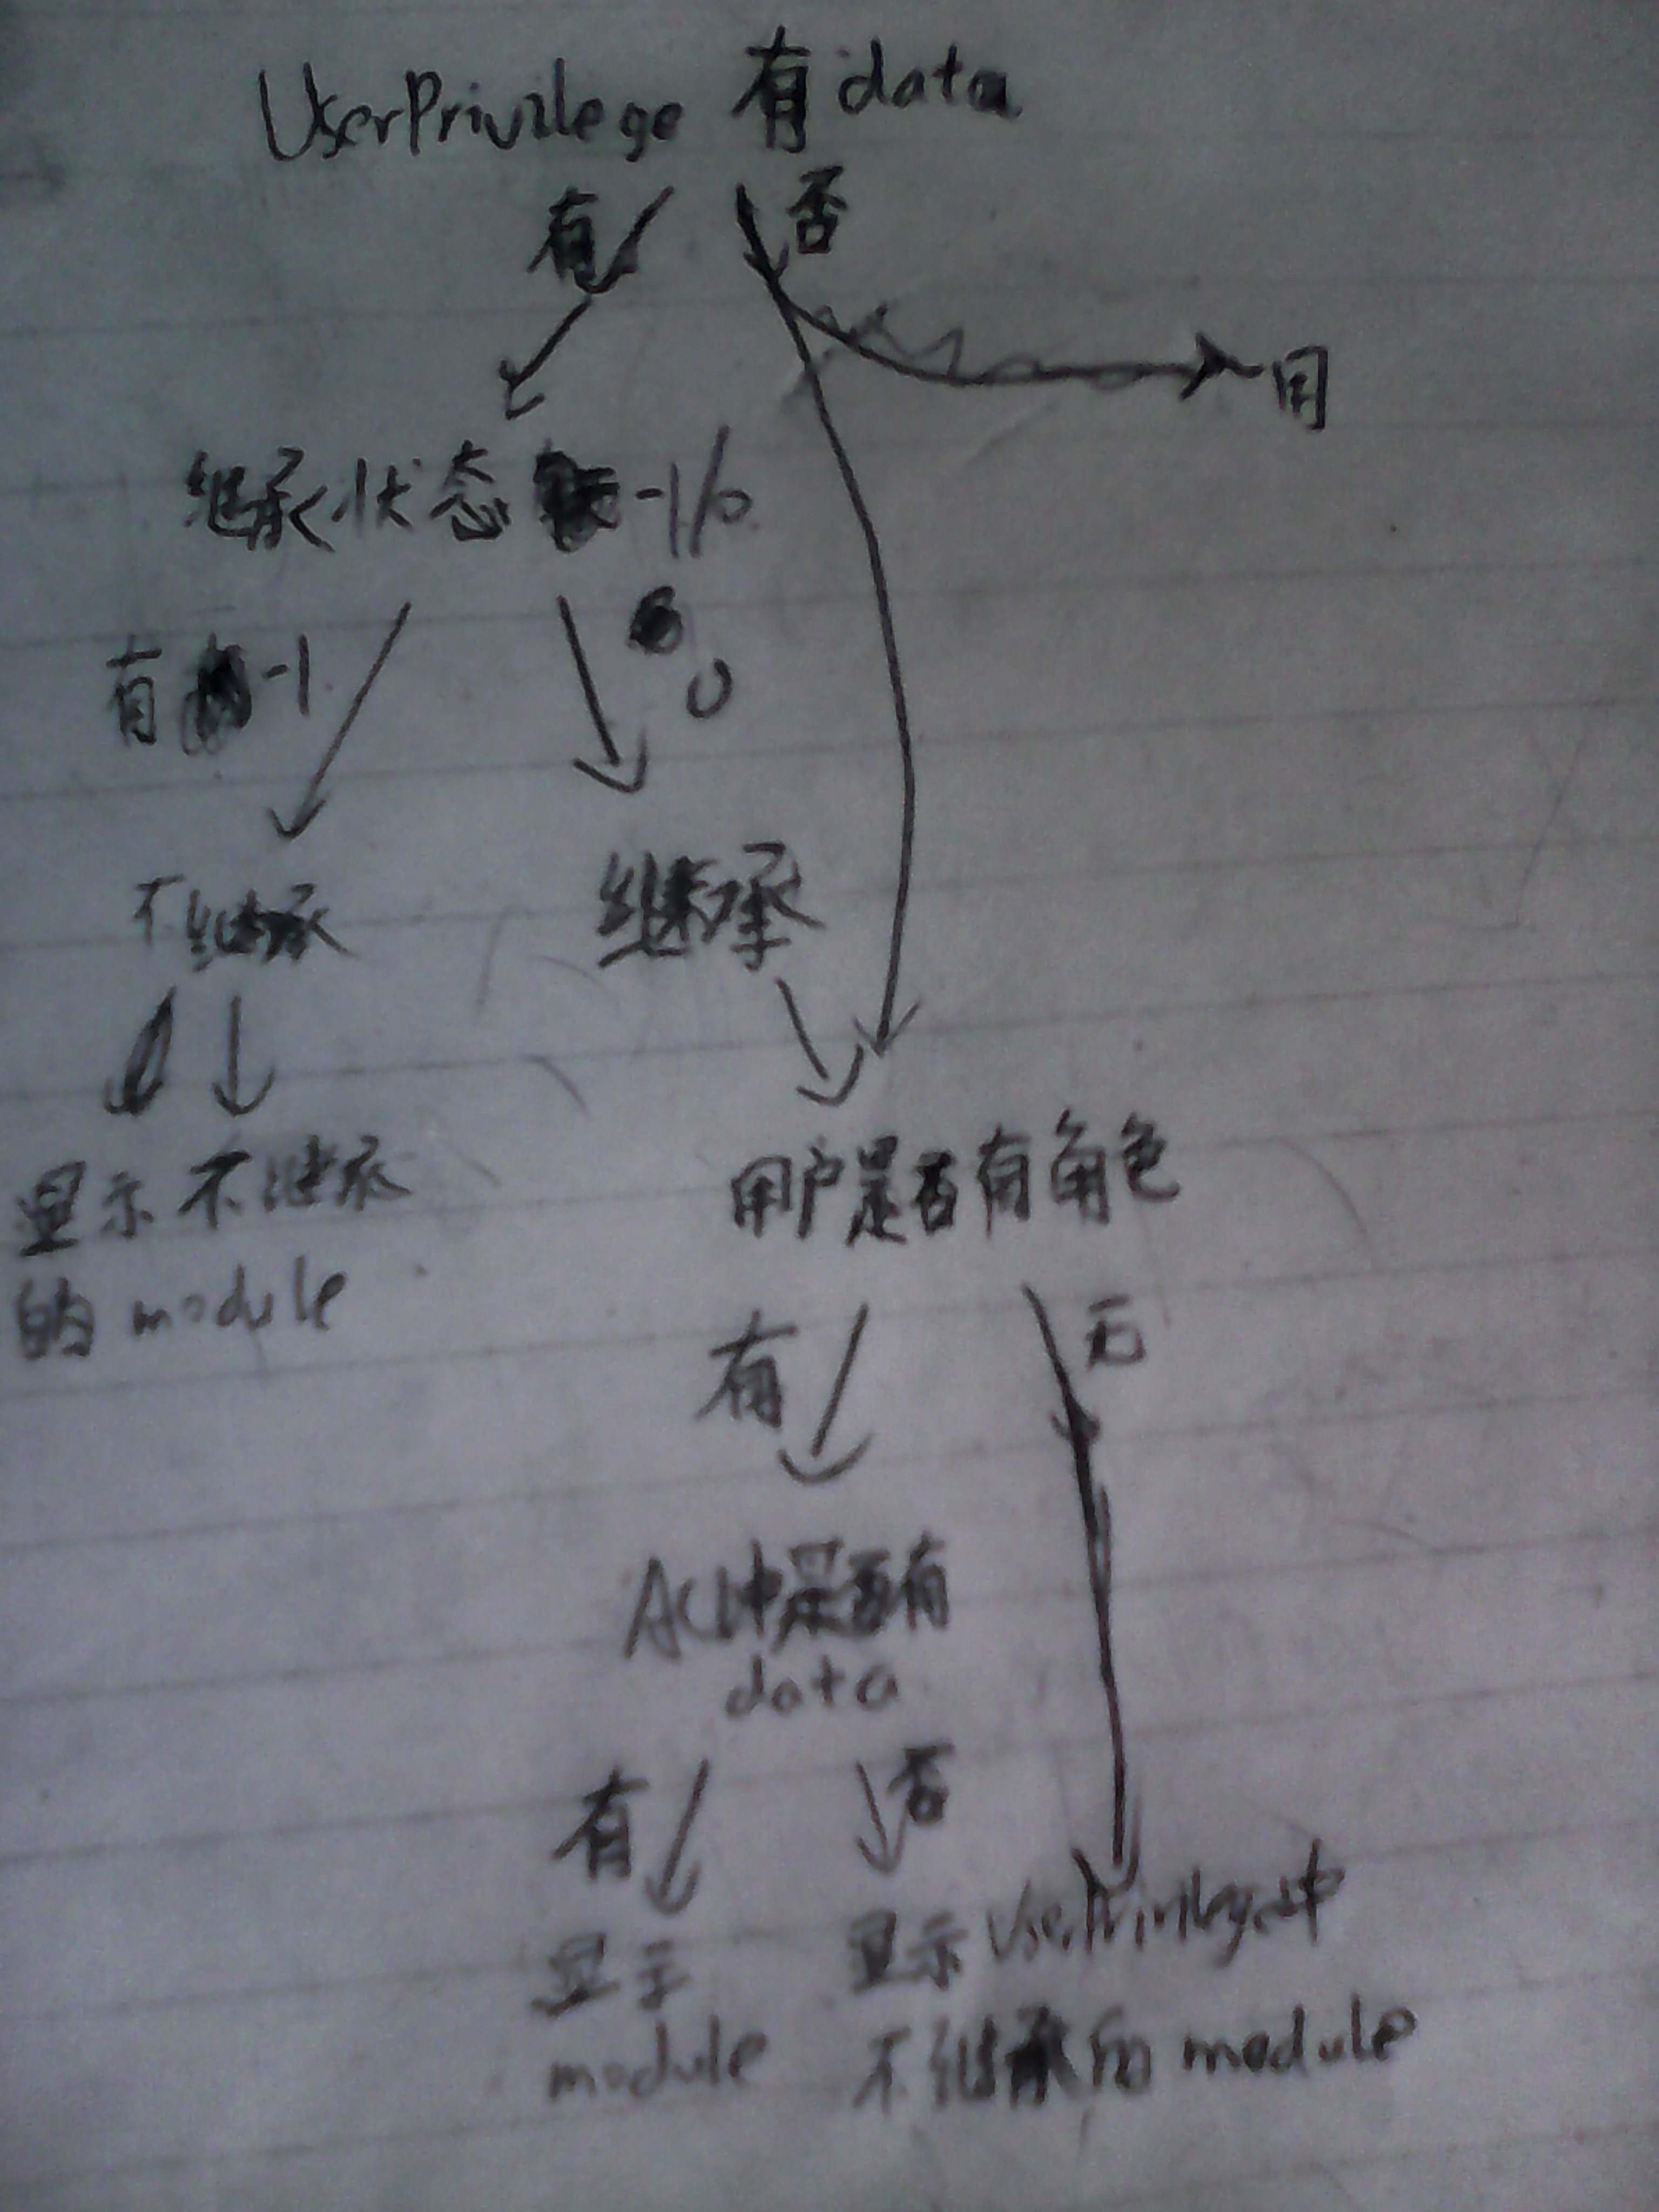 UserPrivilege 有data
有 否
用
继承状态 -1/0
有 -1 0
不继承 继承
显示不继承
的module
用户是否有角色
有 无
ACL中是否有
data
有 否
显示
module
显示UserPrivilege中
不继承的module